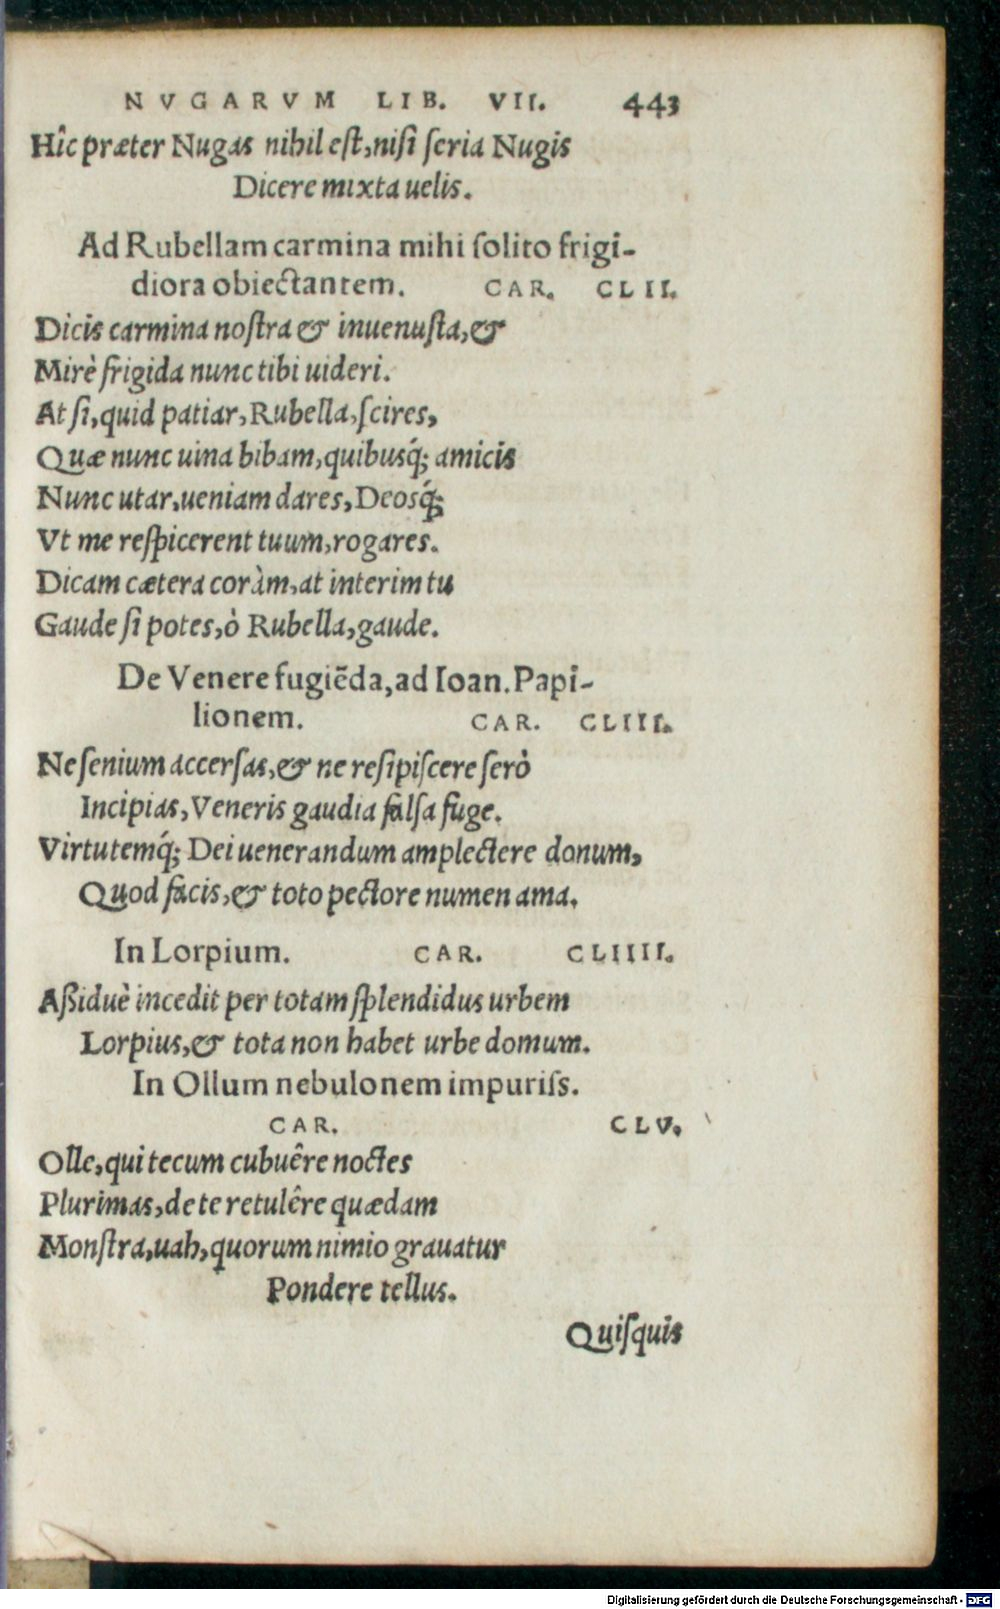 NVGARVM LIB. VII. 443
Hîc præter Nugas nihil est, nisi seria Nugis
Dicere mixta uelis.
Ad Rubellam carmina mihi solito frigi-
diora obiectantem. CAR. CLII.
Dicis carmina nostra & inuenusta, &
Mirè frigida nunc tibi uideri.
At si, quid patiar, Rubella, scires,
Quæ nunc uina bibam, quibusq́; amicis
Nunc utar, ueniam dares, Deosq́;
Vt me respicerent tuum, rogares.
Dicam cætera coràm, at interim tu
Gaude si potes, ò Rubella, gaude.
De Venere fugiẽda, ad Ioan. Papi-
lionem. CAR. CLIII.
Ne senium accersas, & ne resipiscere serò
Incipias, Veneris gaudia falsa fuge.
Virtutemq́; Dei uenerandum amplectere donum,
Quod facis, & toto pectore numen ama.
In Lorpium. CAR. CLIIII.
Aßiduè incedit per totam splendidus urbem
Lorpius, & tota non habet urbe domum.
In Ollum nebulonem impuriss.
CAR. CLV.
Olle, qui tecum cubuêre noctes
Plurimas, de te retulêre quædam
Monstra, uah, quorum nimio grauatur
Pondere tellus.
Quisquis
Digitalisierung gefördert durch die Deutsche Forschungsgemeinschaft - DFG